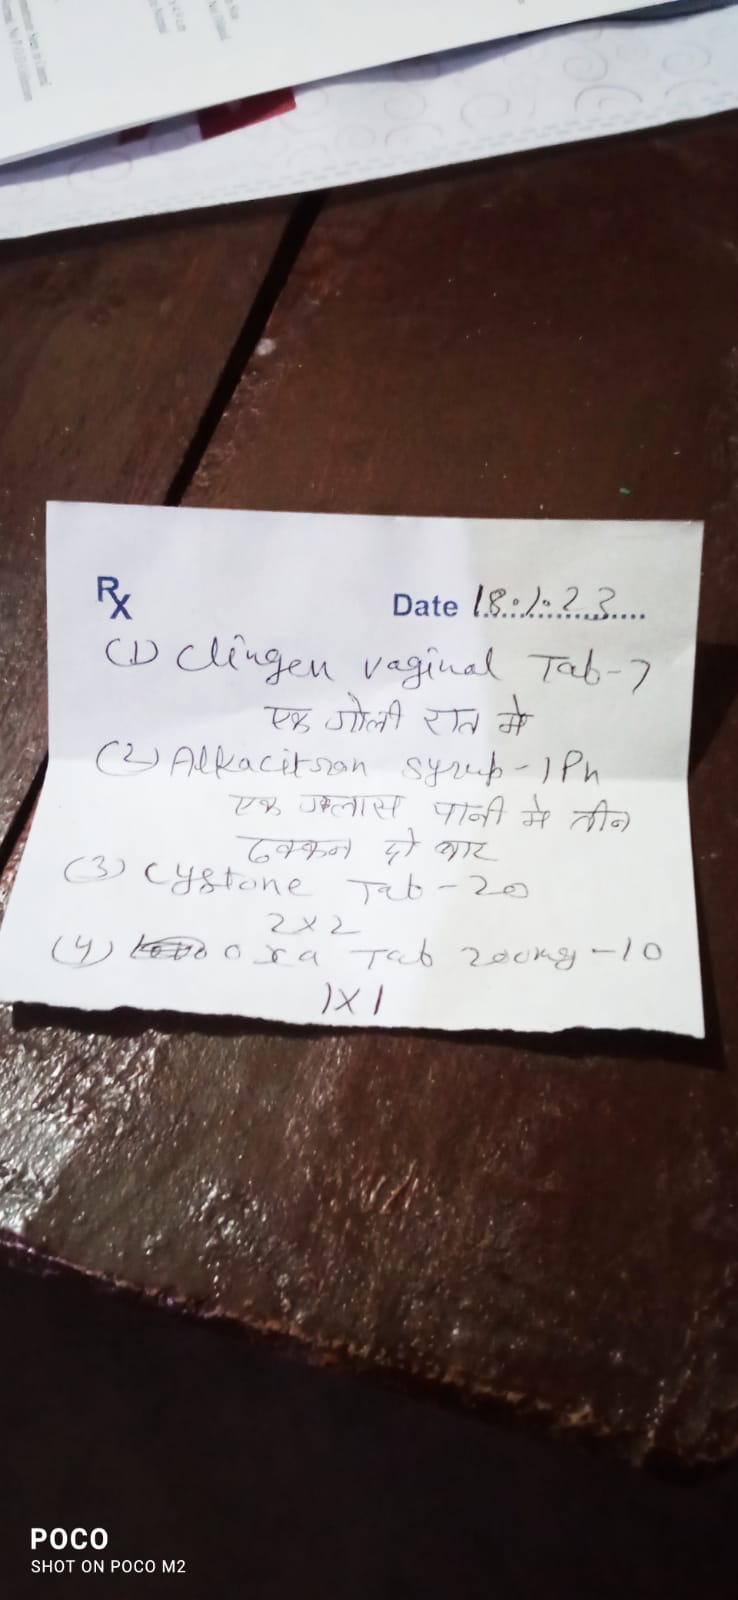 Rx
Date 18.1.23
(1) Clingen vaginal Tab-7
एक गोली रात मे
(2) Alkacitron syrup-1Ph
एक ग्लास पानी मे तीन
ढक्कन दो बार
(3) Cystone Tab-20
2x2
(4) oxa Tab 200mg-10
1x1
POCO
SHOT ON POCO M2